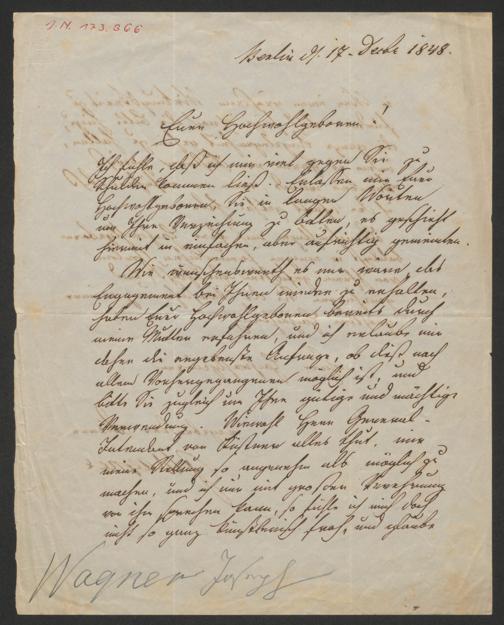 I.N. 173.366
Berlin d. 17. Decbr 1848.
Euer Hochwohlgeboren!
Ich fühle, daß ich mir viel gegen Sie zu
Schulden kommen ließ. Erlassen mir Euer
Hochwohlgeboren, Sie in langen Worten
um Ihre Verzeihung zu bitten, es geschieht
hiermit in einfachen, aber aufrichtig gemeinten.
Wie wünschenswerth es mir wäre, das
Engagement bei Ihnen wieder zu erhalten,
haben Euer Hochwohlgeboren bereits durch
meine Mutter erfahren, und ich erlaube mir
daher die ergebenste Anfrage, ob dieß nach
allem Vorhergegangenen möglich ist, und
bitte Sie zugleich um Ihre gütige und mächtige
Verwendung. Wiewohl Herr General-
Intendant von Küstner alles thut, mir
meine Stellung so angenehm als möglich zu
machen, und ich nur mit großer Verehrung
von ihm sprechen kann, so fühle ich mich doch
nicht so ganz künstlerisch froh, und glaube
Wagner Joseph